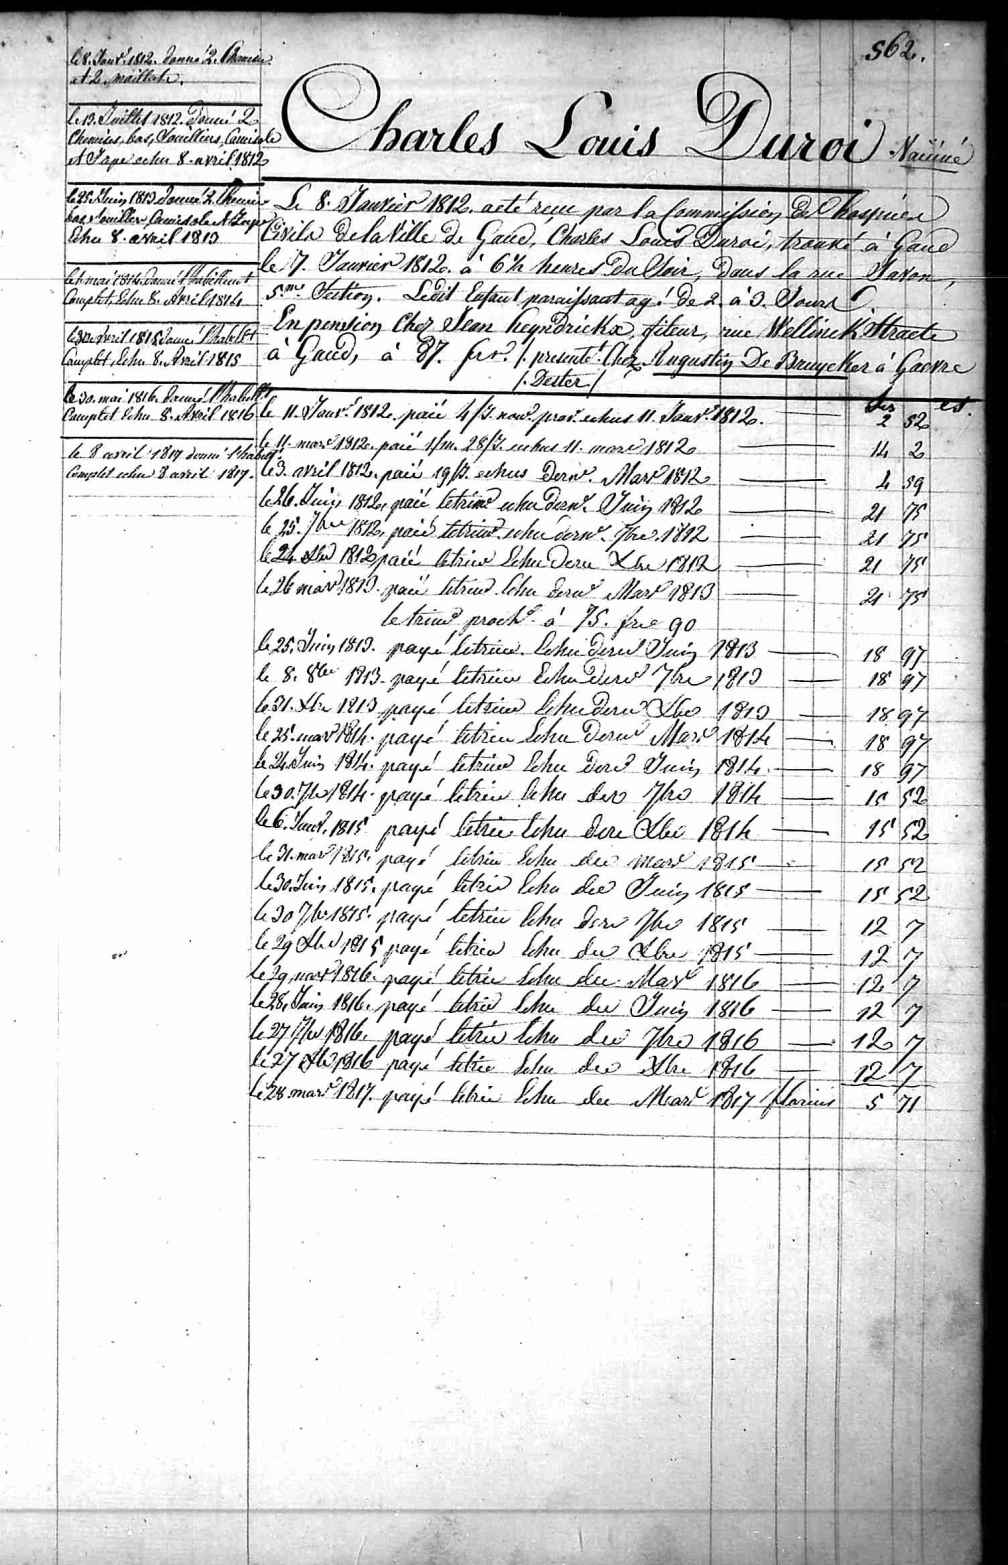 562.
Charles Louis Duroi Vacciné
le 8. Janvr. 1812. donné 2. Chemises
et 2. maillots.
le 13. Juillet 1812. Donné 2
Chemises, bas, Souilliers, Camisole
et Jupe echu 8. avril 1812
le 25. Juin 1813. donné 2. Chemises
bas, Souilliers, Camisole et Jupe
Echu 8. avril 1813
mai 1814. donné l'habillement
Complet, Echu 8. Avril 1814
avril 1815 donné l'habillt
Complet, Echu 8. Avril 1815
le 30. mai 1816. donné l'habillt
Complet Echu 8. Avril 1816
le 8 avril 1817 donné l'habilt.
Complet echu 8 avril 1817.
Le 8. Janvier 1812. a été recu par la Commission des hospices
Civils de la Ville de Gand, Charles Louis Duroi, trouvé à Gand
le 7. Janvier 1812. à 6½ heures du Soir, dans la rue Savon,
5.me Section. Ledit Enfant paraissant agé de 2. à 3. Jours
En pension Chez Jean heyndrickx, fileur, rue Wellinck Straete
à Gand, à 87. frs. /. presenté. Chez Augustin De Bruycker à Gavre
/. Dester /
frs cs.
le 11. Janvr. 1812. paié echus 11. Janvr. 1812. — 2 52
le 11. mars 1812. paié echus 11. mars 1812 — 14 2
le 3. avril 1812. paié echus dernr. Mars 1812 — 4 59
le 26. Juin 1812, paié le trime. echu dernr. Juin 1812 — 21 75
le 25. 7bre 1812, paié le trime. echu dernr. 7bre. 1812 — 21 75
le 24 Xbre 1812 paié le trim Echu dern Xbre 1812 — 21 75
le 26 mars 1813. paié le trime. Echu dernr. Mars 1813 — 21 75
le trime. proche. à 75. frs 90
le 25. Juin 1813. payé le trim. Echu dernr Juin 1813 — 18 97
le 8. 8bre 1813. payé le trim Echu dernr 7bre 1813 — 18 97
le 31. Xbre 1813 payé le trim Echu dernr Xbre 1813 — 18 97
le 25. mars 1814. payé le trim Echu dernr Mars 1814 — 18 97
le 24. Juin 1814. payé le trim Echu derr Juin 1814. — 18 97
le 30. 7bre 1814. payé le trim Echu der 7bre 1814 — 15 52
le 6. Janvr. 1815 payé le trim Echu der Xbre 1814 — 15 52
le 31. mars 1815. payé le trim Echu der mars 1815 — 15 52
le 30. Juin 1815. payé le trim Echu der Juin 1815 — 15 52
le 30 7bre 1815. payé le trim Echu der 7bre 1815 — 12 7
le 29 Xbre 1815 payé le trim Echu der Xbre 1815 — 12 7
le 29. mars 1816. payé le trim Echu der Mars 1816 — 12 7
le 28. Juin 1816. payé le trim Echu der Juin 1816 — 12 7
le 27 7bre 1816. payé le trim Echu der 7bre 1816 — 12 7
le 27 Xbre 1816 payé le trim Echu der Xbre 1816 — 12 7
le 28. mars 1817. payé le trim Echu der Mars 1817 florins 5 71